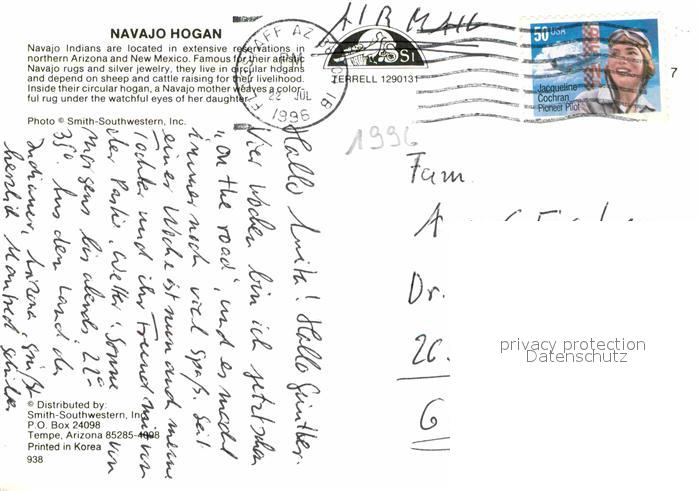 NAVAJO HOGAN
Navajo Indians are located in extensive reservations in
northern Arizona and New Mexico. Famous for their artistic
Navajo rugs and silver jewelry, they live in circular hogans
and depend on sheep and cattle raising for their livelihood.
Inside their circular hogan, a Navajo mother weaves a color-
ful rug under the watchful eyes of her daughter.
Photo © Smith-Southwestern, Inc.
AIR MAIL
FLAGSTAFF AZ
PM
22 JUL
1996
TERRELL 1290131
50 USA
Jacqueline
Cochran
Pioneer Pilot
7
1996
Hallo Anita! Hallo Günther.
Vier Wochen bin ich jetzt schon
"on the road", und es macht
immer noch viel Spaß. Seit
einer Woche ist nun auch meine
Tochter und ihr Freund mit von
der Partie. Wetter: Sonne von
morgens bis abends, 22°
35°. Aus dem Land der
Indianer, Arizona, grüßt
herzlich Manfred
Fam.
A
Dr.
26.
6
privacy protection
Datenschutz
© Distributed by:
Smith-Southwestern, Inc.
P.O. Box 24098
Tempe, Arizona 85285-4098
Printed in Korea
938